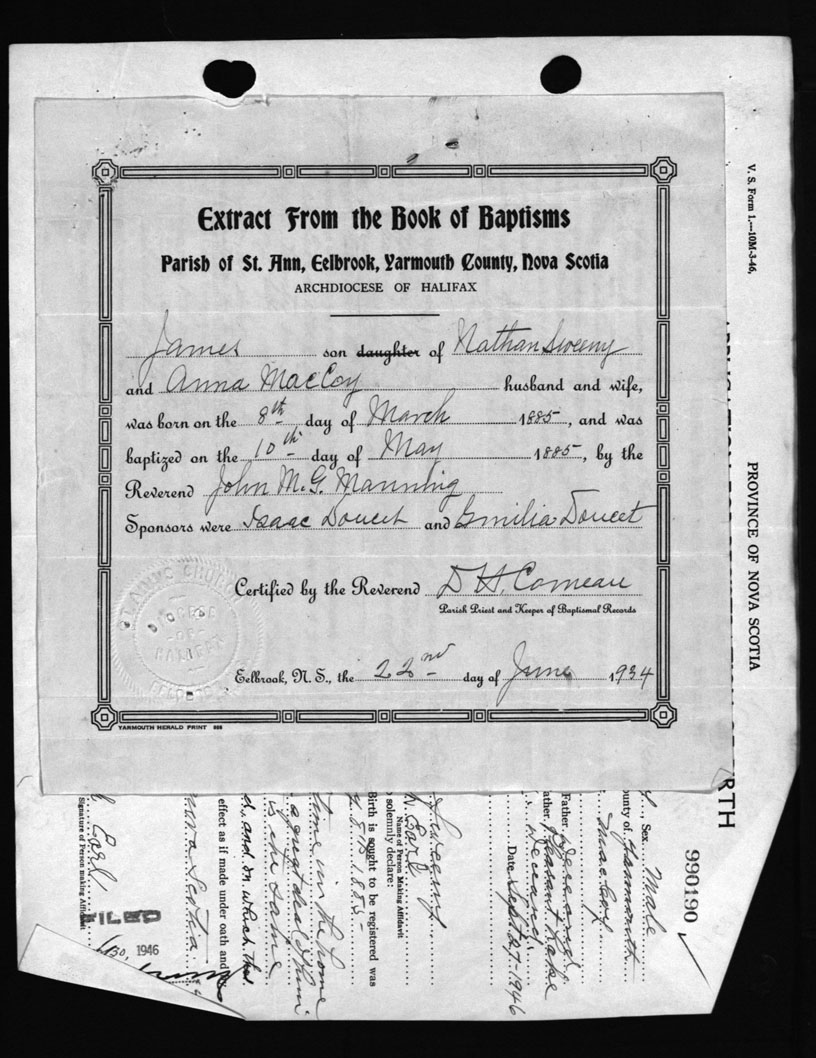 Extract From the Book of Baptisms
Parish of St. Ann, Eelbrook, Yarmouth County, Nova Scotia
ARCHDIOCESE OF HALIFAX
James son daughter of Nathan Sweeny
and Anna MacCoy husband and wife,
was born on the 8th day of March 1885, and was
baptized on the 10th day of May 1885, by the
Reverend John M. G. Manning
Sponsors were Isaac Doucet and Emilia Doucet
Certified by the Reverend D H. Comeau
Parish Priest and Keeper of Baptismal Records
Eelbrook, N. S., the 22nd day of June 1934
YARMOUTH HERALD PRINT
ST. ANN'S CHURCH
DIOCESE
-OF-
HALIFAX
V. S. Form 1.—10M-3-46.
PROVINCE OF NOVA SCOTIA
RTH
990190
Sex Male
ounty of Yarmouth
MacCoy
Father Deceased
ather Pleasant Lake
Date Sept 27-1946
Sweeny
Name of Person Making Affidavit
solemnly declare:
Birth is sought to be registered was
time in the home
is the same
d, and on which the
effect as if made under oath and
Nova Scotia
Earl
Signature of Person making Affidavit
FILED
30, 1946